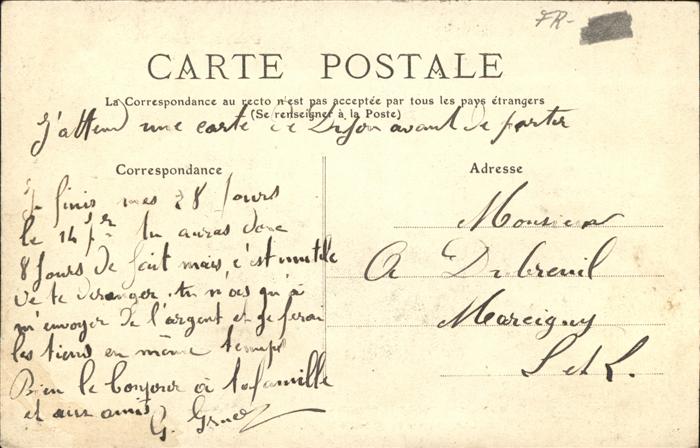 FR-
CARTE POSTALE
La Correspondance au recto n'est pas acceptée par tous les pays étrangers
(Se renseigner à la Poste)
J'attend une carte de Dijon avant de partir
Correspondance
Je finis mes 28 jours
le 14 7bre tu auras donc
8 jours de fait mais c'est inutile
de te deranger. tu n'as qu'à
m'envoyer de l'argent et je ferai
les tiens en même temps
Bien le bonjour à ta famille
et aux amis
G.
Adresse
Monsieur
A Dubreuil
Marcigny
S et L.